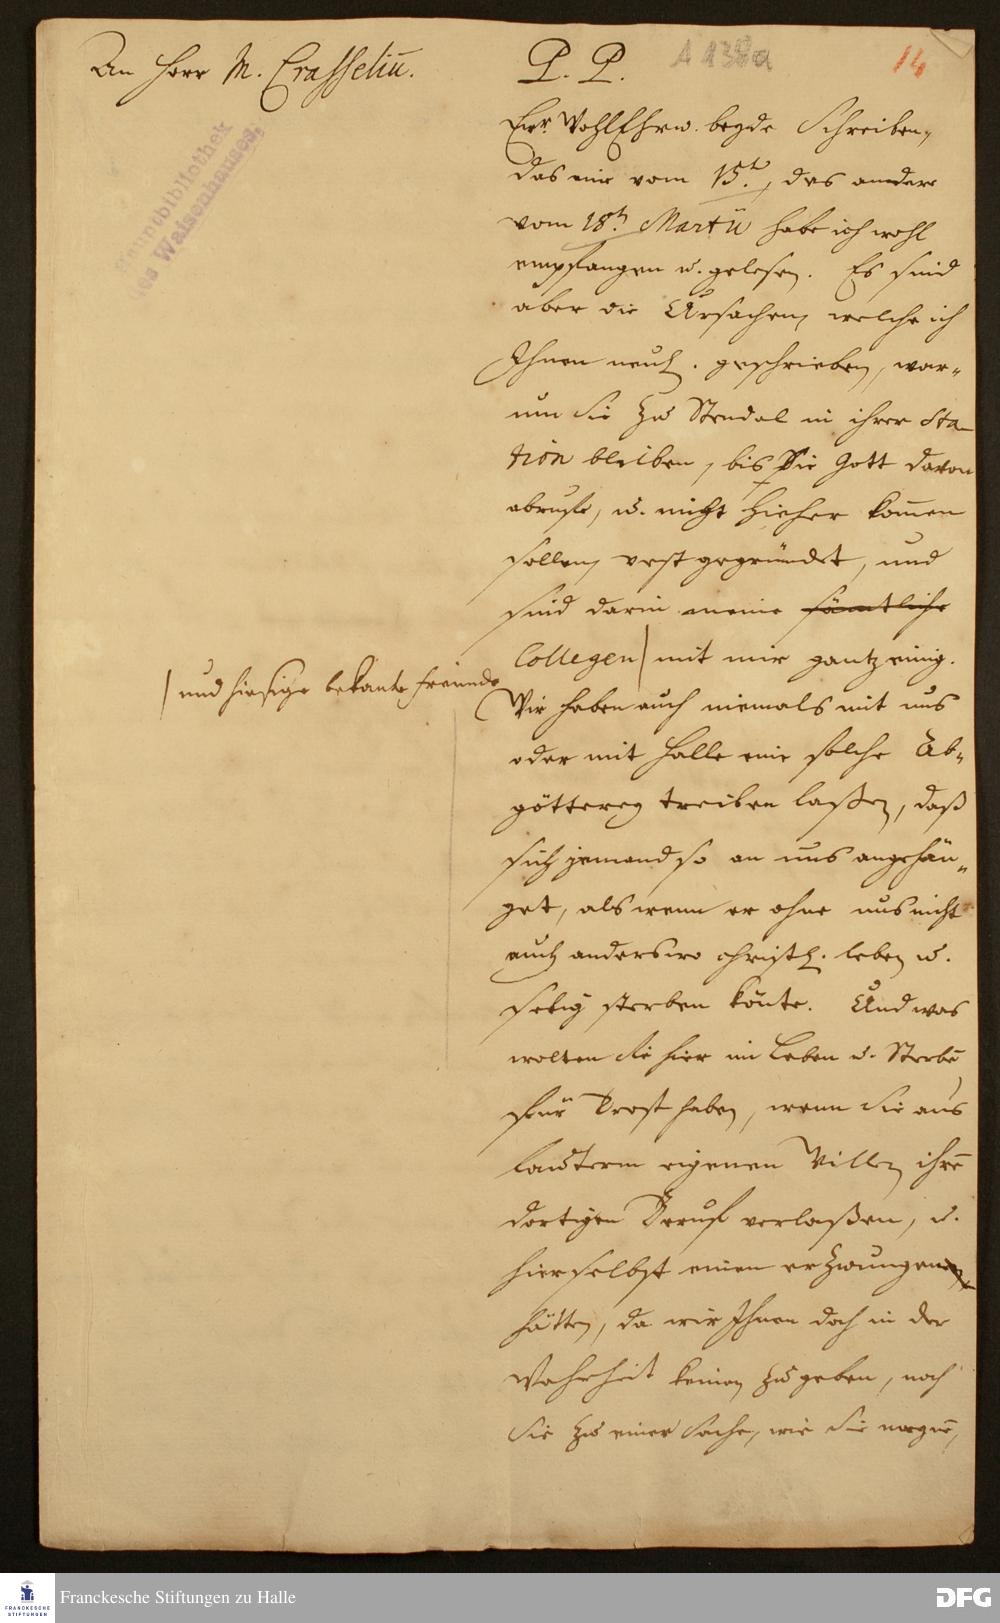 An Herr M. Crasseliū.
P. P.
A 138a
14
Hauptbibliothek
des Waisenhauses.
Ewr. WohlEhrw. beyde Schreiben,
das eine vom 15.t, das andere
vom 18.t Martii habe ich wohl
empfangen u. gelesen. Es sind
aber die Ursachen, welche ich
Ihnen neul. geschrieben, war-
um Sie zu Stendal in ihrer Sta-
tion bleiben, bis Sie Gott davon
abrufe, u. nicht hieher kom̄en
sollen, vest gegründet, und
sind darin meine sämtliche
Collegen | mit mir gantz einig.
| und hiesige bekante freunde
Wir haben auch niemals mit uns
oder mit Halle eine solche Ab-
götterey treiben laßen, daß
sich jemand so an uns angehän-
get, als wenn er ohne uns nicht
auch anderswo christl. leben u.
selig sterben könte. Und was
wolten Sie hier im Leben u. Sterbē
für Trost haben, wenn Sie aus
lauterm eigenen Willen ihrē
dortigen Beruf verlaßen, u.
hierselbst einen erzwungen
hätten, da wir Ihnen doch in der
Wahrheit keinen zu geben, noch
Sie zu einer Sache, wie Sie
Franckesche Stiftungen zu Halle
FRANCKESCHE
STIFTUNGEN
DFG